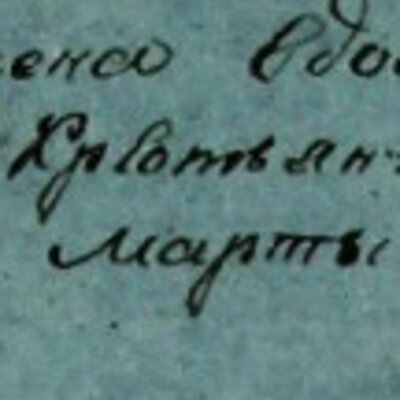 ена вдо
Крестьян-
Марты